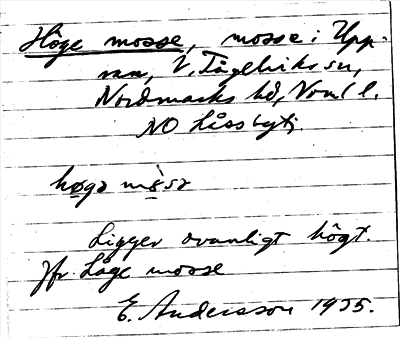 Höge mosse, mosse i Upp-
ran, V. Fågelviks sn,
Nordmarks hd, Vrml l.
NO Låssbyti.
høgə mèsə
Ligger ovanligt högt.
Jfr. Låge mosse
E. Andersson 1935.